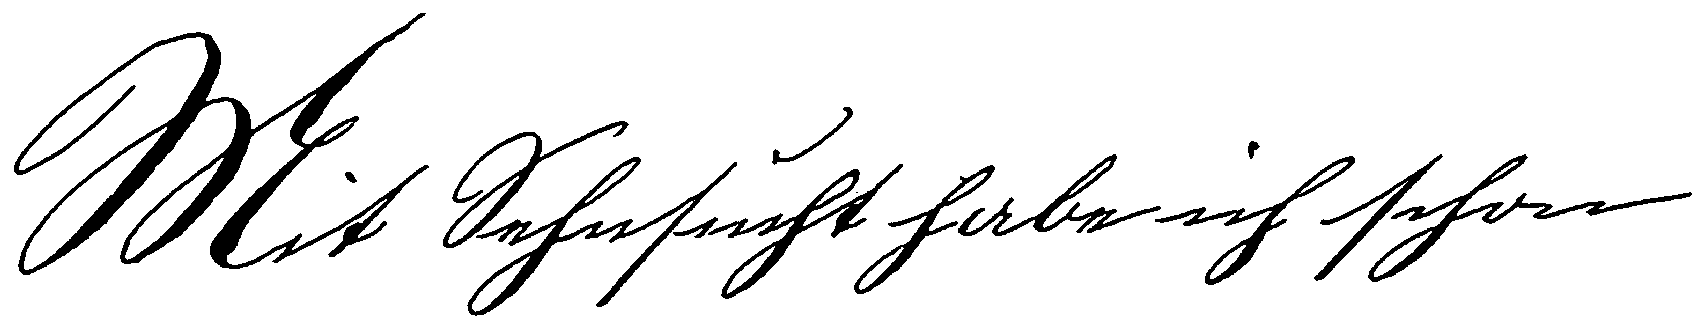 Mit Sehnsucht habe ich schon